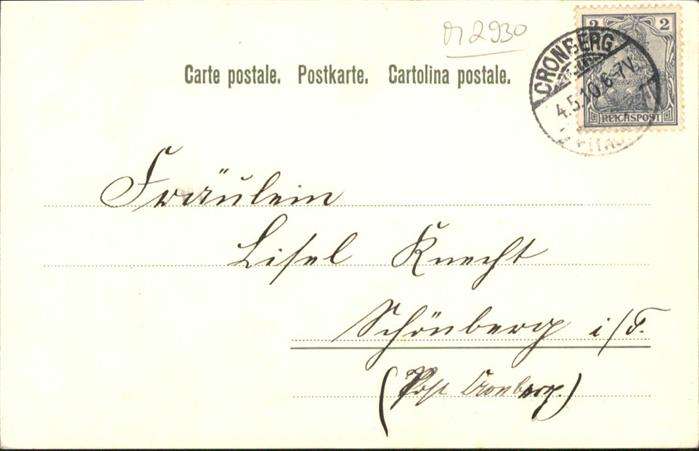 2930
2 2
REICHSPOST
CRONBERG
4.5.10.6-7V.
Carte postale. Postkarte. Cartolina postale.
Fräulein
Lisel Knecht
Schönberg i/T.
(Post Cronberg.)